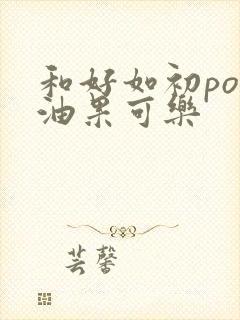 和好如初po
油果可樂
芸馨